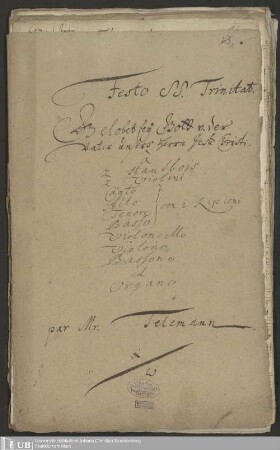 Festo SS. Trinitat.
Gelobet sey Gott u. der
Vater unsres Herrn Jesu Cristi.
a
2 Hautbois
2 Violini
Canto
Alto
Tenore
Basso
con 2 Ripieni
Violoncello
Violone
Bassono
ed
Organo
par Mr. Telemann
UB